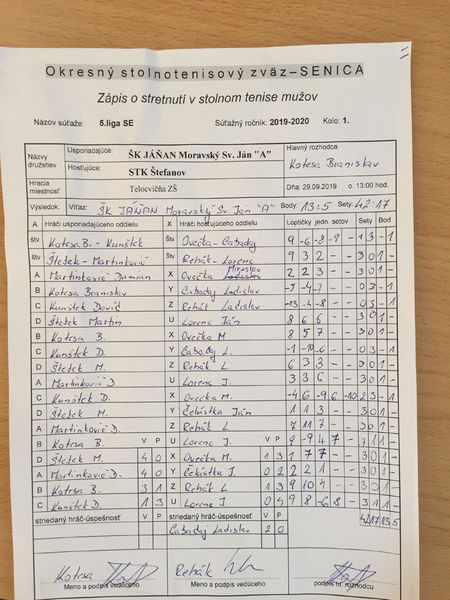 Okresný stolnotenisový zväz–SENICA
Zápis o stretnutí v stolnom tenise mužov
Názov súťaže: 5.liga SE Súťažný ročník: 2019-2020 Kolo: 1.
Názvy družstiev Usporiadajúce: ŠK JÁŇAN Moravský Sv. Ján "A" Hlavný rozhodca
Hosťujúce: STK Štefanov Kotesa Branislav
Hracia miestnosť Telocvičňa ZŠ Dňa: 29.09.2019 o 13:00 hod.
Výsledok: Víťaz: ŠK JÁŇAN Moravský Sv. Ján "A" Body: 13:5 Sety: 42:17
A Hráči usporiadajúceho oddielu X Hráči hosťujúceho oddielu Loptičky jedn. setov Sety Bod
štv Kotesa B. - Kunštek Štv Ovečka - Cabadaj 9 -6 -8 -9 - 1 3 - 1
štv Štetek - Martinkovič Štv Rehák - Lorenc 9 3 2 - - 3 0 1 -
A Martinkovič Damian X Ovečka Miroslav 2 2 3 - - 3 0 1 -
B Kotesa Branislav Y Cabadaj Ladislav -5 -4 -7 - - 0 3 - 1
C Kunštek David Z Rehák Ladislav -13 -4 -8 - - 0 3 - 1
D Štetek Martin U Lorenc Ján 8 6 6 - - 3 0 1 -
B Kotesa B. X Ovečka M 8 5 7 - - 3 0 1 -
C Kunštek D. Y Cabadaj L. -1 -10 -6 - - 0 3 - 1
D Štetek M. Z Rehák L. 6 3 3 - - 3 0 1 -
A Martinkovič D. U Lorenc J. 3 3 6 - - 3 0 1 -
C Kunštek D. X Ovečka M. -4 6 -9 6 -10 2 3 - 1
D Štetek M. Y Čelústka Ján 1 1 3 - - 3 0 1 -
A Martinkovič D. Z Rehák L 7 11 7 - - 3 0 1 -
B Kotesa B. V P U Lorenc J. V P 9 -9 4 7 - 3 1 1 -
D Štetek M. 4 0 X Ovečka M. 1 3 1 7 7 - - 3 0 1 -
A Martinkovič D. 4 0 Y Čelústka J. 0 2 2 2 1 - - 3 0 1 -
B Kotesa B. 3 1 Z Rehák L 1 3 9 10 4 - - 3 0 1 -
C Kunštek D. 1 3 U Lorenc J 0 4 9 8 -6 8 - 3 1 1 -
striedaný hráč-úspešnosť V P striedaný hráč-úspešnosť V P 42 17 13 5
Cabadaj Ladislav 2 0
Kotesa Rehák
Meno a podpis vedúceho Meno a podpis vedúceho podpis hl. rozhodcu